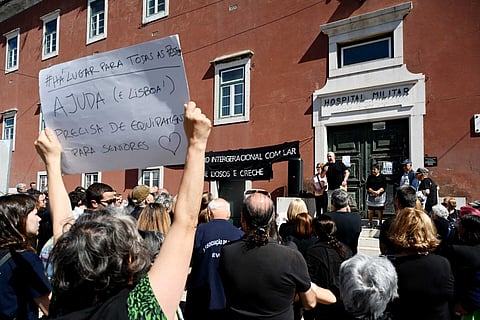 #HÁ LUGAR PARA TODAS AS
AJUDA (E LISBOA!)
PRECISA DE EQUIPAMEN
PARA SENIORES
HOSPITAL MILITAR
O INTERGERACIONAL COM LAR
E IDOSOS E CRECHE